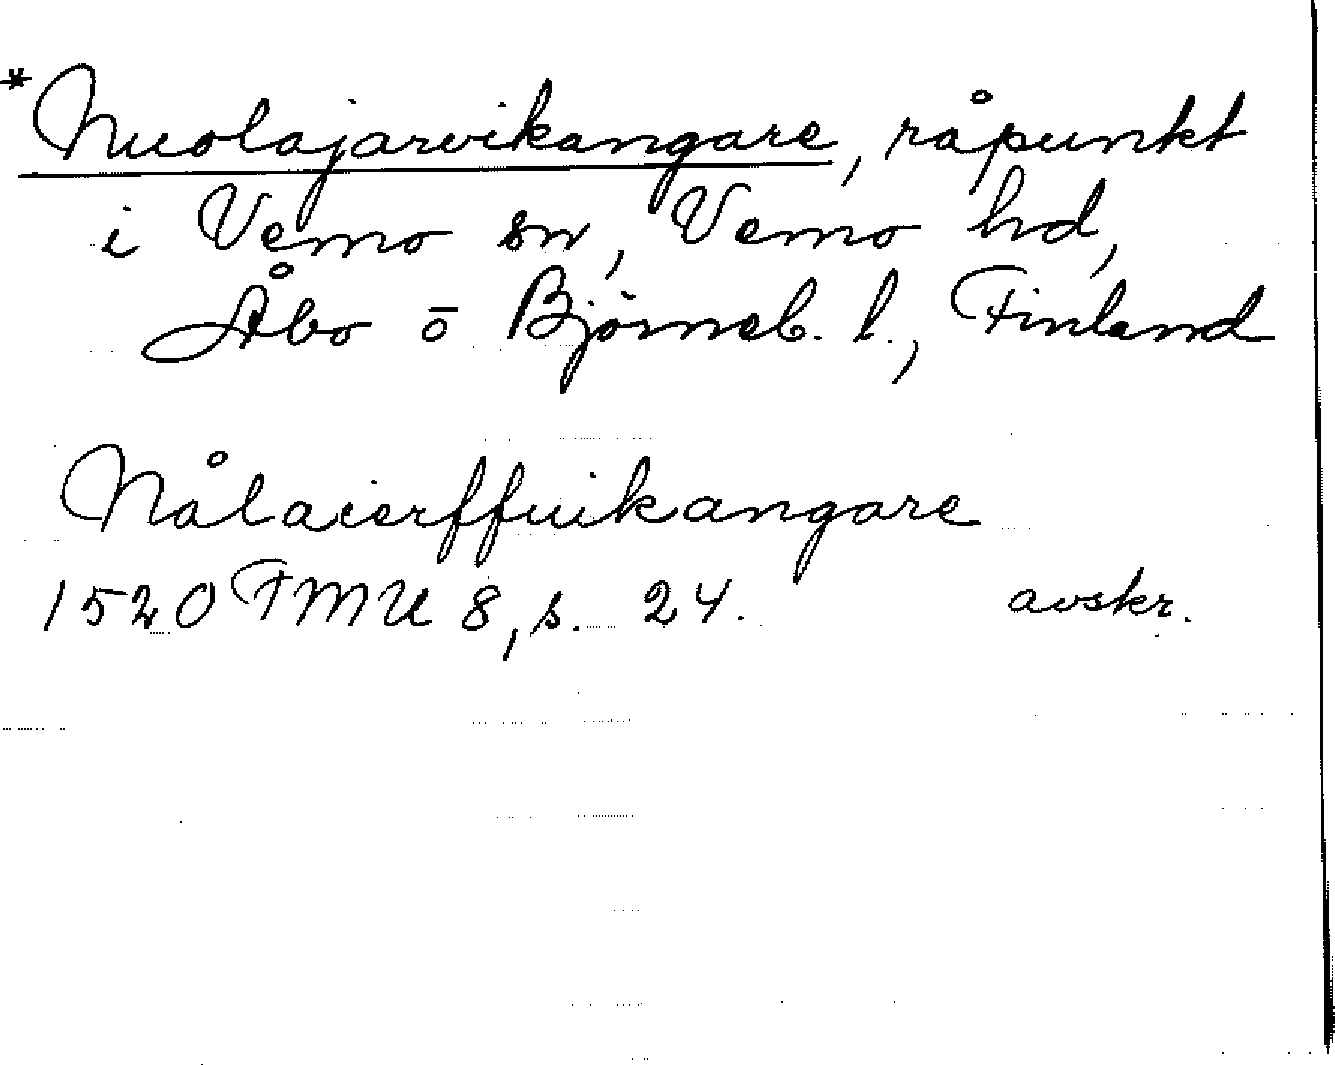 *Nuolajarvikangare, råpunkt
i Vemo sn, Vemo hd,
Åbo o Björneb. l., Finland
Nålaierffuikangare
1520 FMU 8, s. 24. avskr.